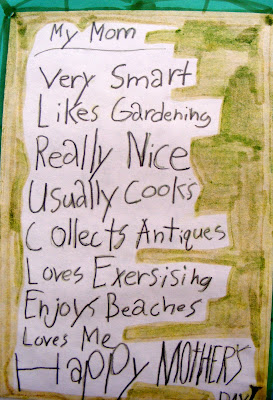 My Mom
Very Smart
Likes Gardening
Really Nice
Usually Cooks
Collects Antiques
Loves Exersising
Enjoys Beaches
Loves Me
Happy MOTHER'S
DAY!